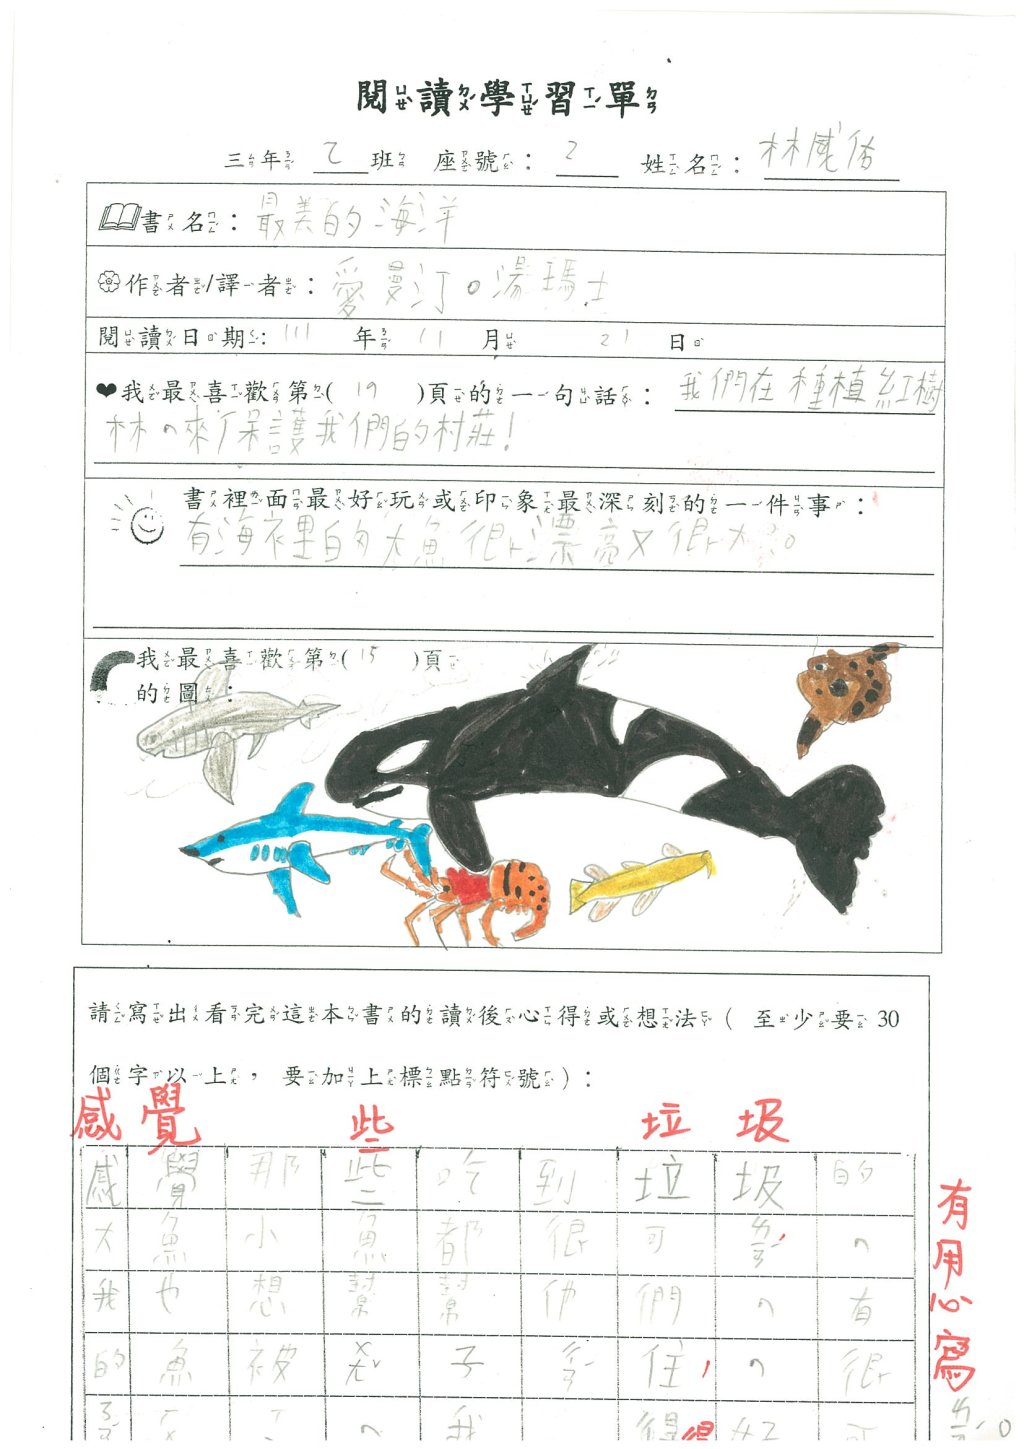 閱讀學習單
三年乙班 座號：2 姓名：林感佑
書名：最美的海洋
作者/譯者：愛曼汀。湯瑪士
閱讀日期：111年11月21日
我最喜歡第(19)頁的一句話：我們在種植紅樹
林、來保護我們的村莊！
書裡面最好玩或印象最深刻的一件事：
有海裡的大魚很漂亮又很大。
我最喜歡第(15)頁
的圖：
請寫出看完這本書的讀後心得或想法（至少要30
個字以上，要加上標點符號）：
感覺 些 垃圾
感覺那些吃到垃圾的
大魚小魚都很可ㄌㄧㄢˊ、
我也想幫幫他們、有
的魚被ㄒㄧㄚ子ㄓㄨㄚ住，、很
我 得 好可
有用心寫